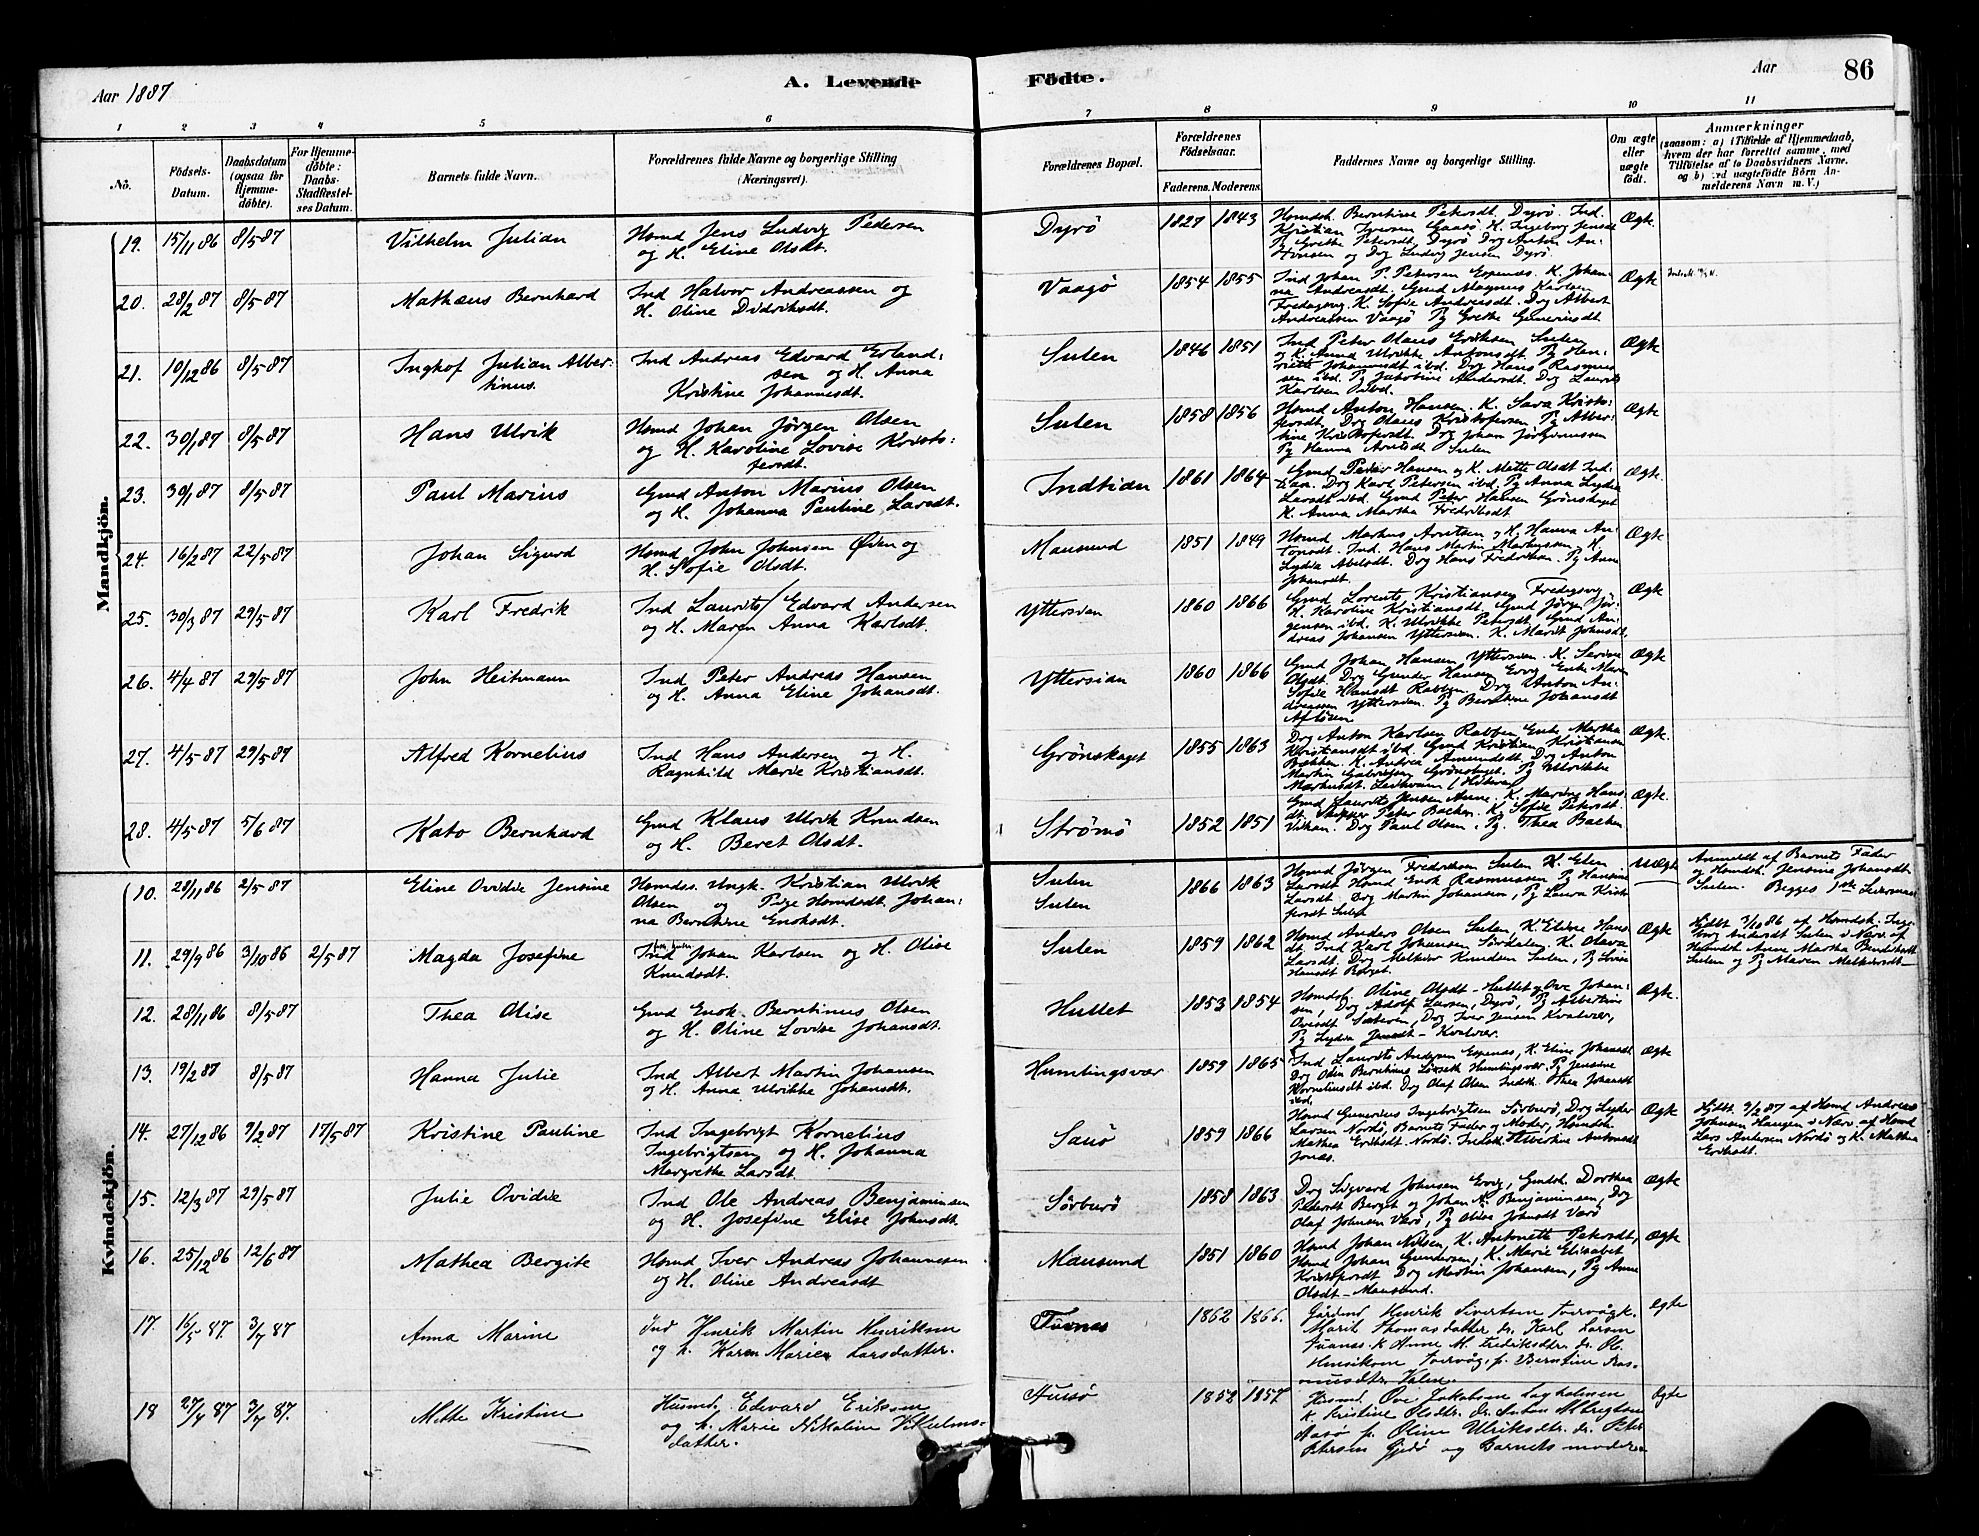 Aar 1887
A. Levende
Födte.
Aar
86
1 2 3 4 5 6 7 8 9 10 11
No.
Födsels-Datum.
Daabsdatum (ogsaa for Hjemme-döbte).
For Hjemme-döbte: Daabs-Stadfæstel-ses Datum.
Barnets fulde Navn.
Forældrenes fulde Navne og borgerlige Stilling (Næringsvei).
Forældrenes Bopæl.
Forældrenes Födselsaar.
Faderens. Moderens.
Faddernes Navne og borgerlige Stilling.
Om ægte eller uægte födt.
Anmærkninger
(saasom: a) i Tilfælde af Hjemmedaab,
hvem der har forrettet samme, med
Tilföielse af to Daabsvidners Navne.
og b) ved uægtefödte Börn An-
melderens Navn m. V.)
Mandkjön.
19. 15/11 86 8/5 87 Vilhelm Julian
Hsmd Jens Ludvig Pedersen
og H. Eline Olsdt.
Dyrö 1827 1843
Hsmdd. Berntine Petersdt. Dyrö. Ind.
Kristian Iversen Gaasö. H. Ingeborg Jensdt
Pg Grethe Petersdt, Dyrö Drg Anton An-
tonsen og Drg Ludvig Jensen Dyrö.
Ægte.
20. 28/2 87 8/5 87 Mathæus Bernhard
Ind Halvor Andreassen og
H. Oline Didriksdt.
Vaagö 1854 1855
Ind Johan P. Petersen Espenæs. K. Johan-
na Andreasdt. Gmd Magnus Karlsen
Fredagsvg. K. Sofie Andreasdt. Drg Albert
Andreassen Vaagö Pg Grethe Guneriusdt.
Ægte
21. 10/12 86 8/5 87 Inghof Julian Alber-
tinus.
Ind Andreas Edvard Erland-
sen og H. Anna
Kristine Johannesdt.
Sulen 1846 1851
Ind Peter Olaus Eriksen Sulen
og K. Anna Ulrikke Antonsdt. Pg Hen-
riette Johannesdt ibd. Drg Hans Rasmus-
sen ibd. Pg Jakobine Andersdt. Drg Laurits
Karlsen ibd.
Ægte
22. 30/1 87 8/5 87 Hans Ulrik
Hsmd Johan Jörgen Olsen
og H. Karoline Lovise Kristo-
fersdt.
Sulen 1858 1856
Hsmd Anton Hansen. K. Sara Kristo-
fersdt. Drg Olaus Kristofersen Pg Alber-
tine Kristofersdt. Drg Johan
Pg Hanna Arntsdt Sulen
Ægte
23. 30/1 87 8/5 87 Paul Marius
Gmd Anton Marius Olsen
og H. Johanna Pauline Larsdt.
Indtian 1861 1864
Gmd Peder Hansen og K. Mette Olsdt Ind-
tian. Drg Karl Petersen ibd. Pg Anna Lydia
Larsdt ibd. Gmd Peter Hansen Grönskaget
K. Anna Martha Fredriksdt
Ægte.
24. 16/2 87 22/5 87 Johan Sigurd
Hsmd John Johnsen Öien og
H. Sofie Olsdt.
Mausund 1851 1849
Hsmd Markus Arntsen og H. Hanna An-
tonsdt. Ind. Hans Martin Markussen. K.
Lydia Abelsdt. Drg Hans Fredriksen. Pg Anne
Johansdt.
Ægte
25. 30/3 87 29/5 87 Karl Fredrik
Ind Laurits Edvard Andersen
og H. Maren Anna Karlsdt.
Yttersian 1860 1866
Gmd Lorents Kristiansen Fredagsvg
K. Karoline Kristiansdt. Gmd Jörgen Jör-
gensen ibd. K. Ulrikke Petersdt. Gmd An-
dreas Johansen Yttersian. K. Marit Johnsdt.
Ægte
26. 4/4 87 29/5 87 John Heitmann
Ind Peter Andreas Hansen
og H. Anna Eline Johansdt.
Yttersian 1860 1866
Gmd Johan Hansen Yttersian. K. Serine
Olsdt. Drg Gunder Hansen Ervg Enke Maren
Sofie Hansdt Rabben. Drg Anton An-
dreassen Yttersian. Pg Berntine Johansdt
Aflösen
Ægte
27. 4/5 87 29/5 87 Alfred Kornelius
Ind Hans Andersen og H.
Ragnhild Marie Kristiansdt.
Grönskaget 1855 1863
Drg Anton Karlsen Rabben, Enke Martha
Kristiansdt ibd. Gmd Kristian Kristiansen
Bekken. K. Andrea Amundsdt. Drg Anton
Martin Gabrielsen Grönskaget. Pg Ulrikke
Markusdt. (Hitteren)
Ægte.
28. 4/5 87 5/6 87 Kato Bernhard
Gmd Klaus Ulrik Knudsen
og H. Beret Olsdt.
Strömö 1852 1851
Gmd Laurits Jensen K. Marine Hans-
dt. Skipper Peter Bachen. K. Sofie Petersdt.
Vikan. Drg Paul Olsen, Pg. Thea Bachen
Ægte.
Kvindekjön.
10. 28/11 86 2/5 87 Eline Ovidie Jensine
Hsmdss. Ungk. Kristian Ulrik
Olsen og Pige Hsmdsdt Johan-
na Berntine Enoksdt.
Sulen
Sulen
1866 1863
Hsmd Jörgen Fredriksen Sulen K. Elen
Larsdt Hsmd Enok Rasmussen, Pg Hansine
Larsdt, Drg Martin Johansen, Pg Laura Kristo-
fersdt Sulen
Uægte
Anmeldt af Barnets Fader
og Hsmdsdt. Jensine Johansdt
Sulen. Begges 1ste Leiermaal
11. 29/9 86 3/10 86 2/5 87 Magda Josefine
Ind Johan Karlsen og H. Olise
Knudsdt.
Sulen 1859 1862
Hsmd Anders Olsen Sulen, K. Eline Hans-
dt. Ind Karl Johansen Sördalen, K. Olava
Larsdt. Drg Melkior Knudsen Sulen, Pg Lovise
Hansdt Borget.
Ægte
Hjdbt. 3/10 86 af Hsmdsk. Inge-
borg Andersdt Sulen i Nærv. af
Hsmdsk Anne Martha Bendiksdt
Sulen og Pg Maren Melkiorsdt
12. 28/11 86 8/5 87 Thea Olise
Gmd Enok Berntinus Olsen
og H. Oline Lovise Johansdt.
Hullet 1853 1854
Hsmdsk Oline Olsdt - Hullet, Ove Johan-
sen, Drg Adolf Larsen, Dyrö, Pg Albertine
Ovesdt Sæteren, Drg Iver Jensen Kvalvær,
Pg Lydia Jensdt - Kvalvær.
Ægte.
13. 19/2 87 8/5 87 Hanna Julie
Ind Albert Martin Johansen
og H. Anna Ulrikke Johansdt.
Humlingsvær 1859 1865
Ind Laurits Andersen Espenæs, K. Eline Johansdt
Drg Odin Berntinus Humlingsvær, Pg Jensine
Korneliusdt ibd. Drg Olaf Olsen Indtn. Thea Johansdt
ibd.
Ægte
14. 27/12 86 9/2 87 17/5 87 Kristine Pauline
Ind Ingebrigt Kornelius
Ingebrigtsen og H. Johanna
Margrethe Larsdt.
Sauö 1859 1866
Hsmd Gunerius Ingebrigtsen Sörburö, Drg Lyder
Larsen Nordö, Barnets Fader og Moder, Hsmdsk
Mathea Eriksdt. Nordö. Indsk. Albertine Antonsdt
Ægte
Hjdbt. 9/2 87 af Hsmd Andreas
Johnsen Haugen i Nærv. af Hsmd
Lars Andersen Nordö og K. Mathea
Eriksdt.
15. 12/3 87 29/5 87 Julie Ovidie
Ind Ole Andreas Benjaminsen
og H. Josefine Elise Johnsdt.
Sörburö 1858 1863
Drg Sigvard Johnsen Ervg, Gmdsk. Dorthea
Pedersdt Berget og Johan A. Benjaminsen, Drg
Olaf Johnsen Værö, Pg Oline Johnsdt Værö
Ægte
16. 25/12 86 12/6 87 Mathea Bergite
Hsmd Iver Andreas Johannesen
og H. Oline Andreasdt
Mausund 1851 1860
Hsmd Johan Nilsen, K. Antonette Petersdt,
Hsmd Johan Gundersen, K. Marie Elisabet
Kristofersdt Drg Martin Johansen, Pg Anne
Olsdt - Mausund.
Ægte
17. 16/5 87. 3/7 87 Anna Marine
Ind Henrik Martin Henriksen
og h. Karen Marie Larsdatter.
Tuenæs 1862 1866.
Gårdmd Henrik Sivertsen Tuervågk.
Marit Thomasdatter dr. Karl Larsen
Tuanæs. k. Anne M. Fredriksdtr. dr. Ol.
Henriksen Tuervåg, p. Berntine Ras-
musdtr Valen.
Egte
18 27/4 87 3/7 87. Mette Kristine
Husmd. Edevard Eriksen
og h. Marie Nikoline Vilhelms-
datter.
Aursö 1852 1857
Husmd Ove Jakobsen Lagholmen
k. Kristine Olsdtr. dr. Anton Albregtsen
Aasö p. Oline Ulriksdtr. dr. Peter
Petersen Gjedö og Barnets moder.
Egte